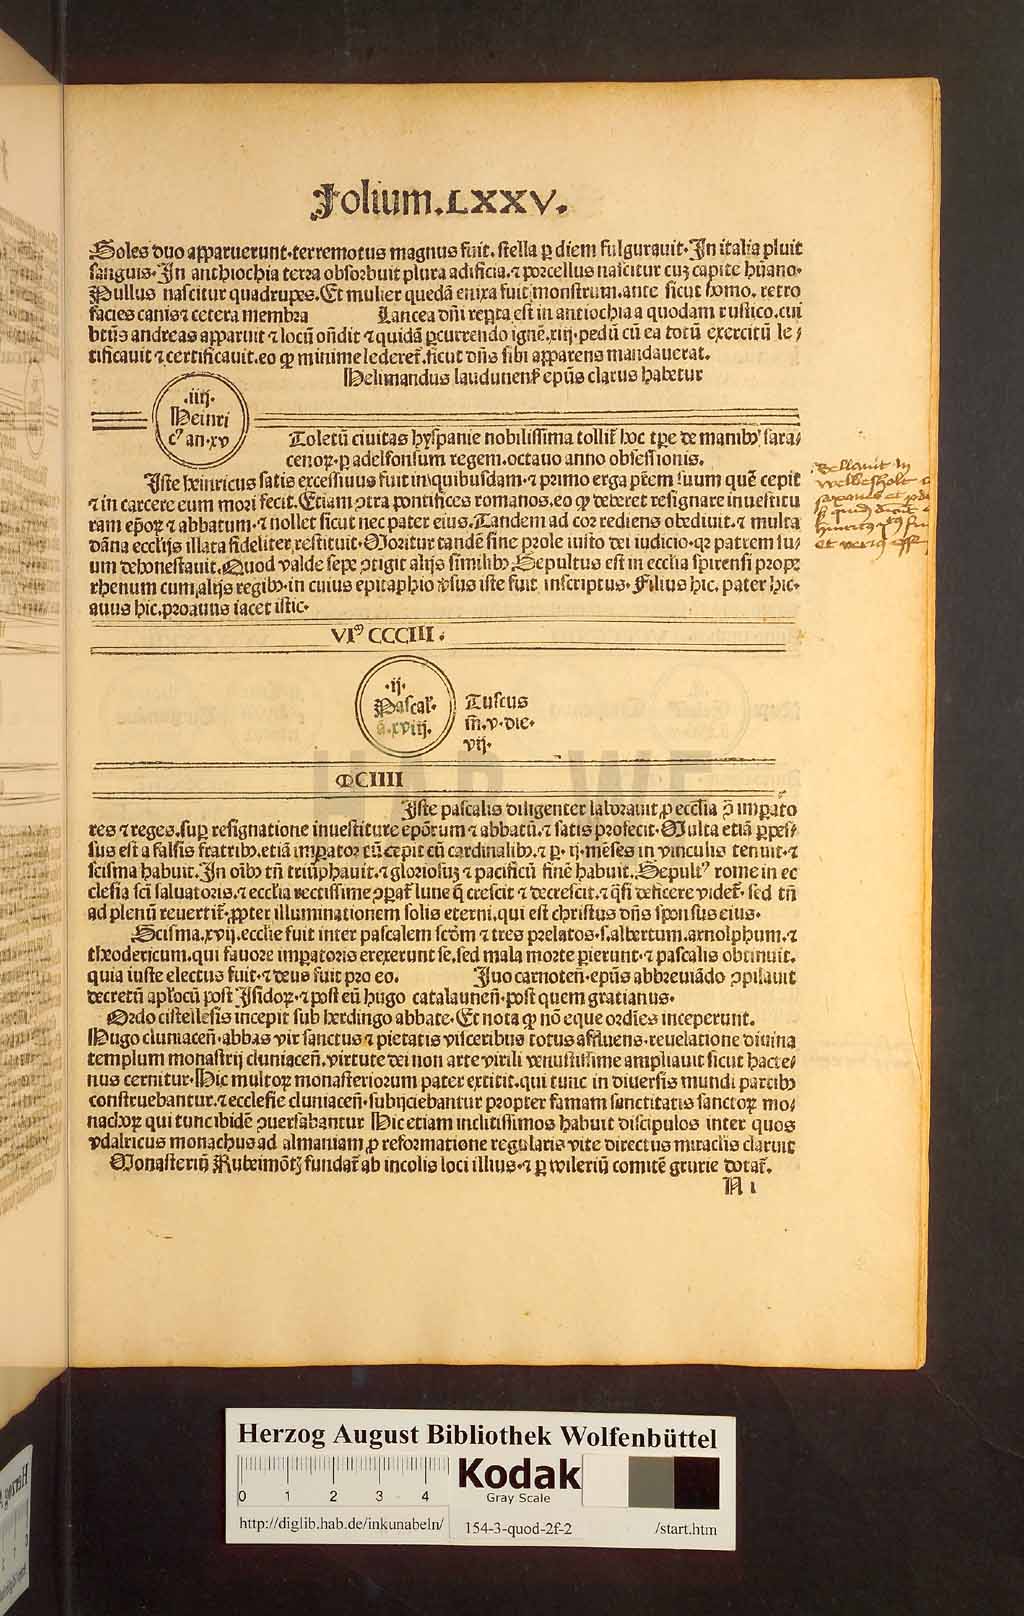 Folium.LXXV.
Soles duo apparuerunt·terremotus magnus fuit. stella ꝑ diem fulgurauit·In italia pluit
sanguis·In anthiochia terra obsorbuit plura ądificia.⁊ porcellus nascitur cuȝ capite hūano·
Pullus nascitur quadrupes.Et mulier quedā enixa fuit monstrum.ante sicut homo. retro
facies canis⁊ cetera membra Lancea dñi reꝑta est in antiochia a quodam rustico.cui
btūs andreas apparuit ⁊ locū oñdit ⁊ quidā ꝑcurrendo ignē.xiij.pedū cū ea totū exercitū le⸗
tificauit ⁊ certificauit.eo ꝙ minime lederet̄.sicut dñs sibi apparens mandauerat.
Helimandus laudunens̄ epūs clarus habetur
·iiij·
Heinri
cꝰ an·xv
Toletū ciuitas hyspanie nobilissima tollit̄ hoc tꝑe de manibꝰ sara⸗
cenoꝝ·ꝑ adelfonsum regem.octauo anno obsessionis.
Iste heinricus satis excessiuus fuit in quibusdam·⁊ primo erga pr̄em suum quē cepit
⁊ in carcere eum mori fecit.Etiam ꝯtra pontifices romanos.eo ꝙ deberet resignare inuestitu
ram epōꝝ ⁊ abbatum·⁊ nollet sicut nec pater eius.Tandem ad cor rediens obediuit.⁊ multa
dāna eccl̄ijs illata fideliter restituit·Moritur tandē sine prole iusto dei iudicio·qꝛ patrem su⸗
um dehonestauit.Quod valde sepe ꝯtigit alijs similibꝰ.Sepultus est in eccl̄ia spirensi prope
rhenum cum alijs regibꝰ·in cuius epitaphio v̓sus iste fuit inscriptus·Filius hic. pater hic·
auus hic.proauus iacet istic·
VIᵐ CCCIII.
·ij·
Pascal̄·
ā.xviij.
Tuscus
m̄.v·die·
vij·
MCIIII
Iste pascalis diligenter laborauit ꝓ eccl̄ia ꝯ̄ imꝑato
res ⁊ reges.suꝑ resignatione inuestiture epōrum ⁊ abbatū.⁊ satis profecit·Multa etiā ꝑpes⸗
sus est a falsis fratribꝰ.etiā imꝑator eū cepit cū cardinalibꝰ.⁊ ꝑ· ij·mēses in vinculis tenuit·⁊
scisma habuit.In oībꝰ tn̄ triūphauit.⁊ gloriosuȝ ⁊ pacificū finē habuit.Sepultꝰ rome in ec
clesia sc̄i saluatoris.⁊ eccl̄ia rectissime ꝯꝑat̄ lune q̄ crescit ⁊ decrescit.⁊ q̄si deficere videt̄· sed tn̄
ad plenū reuertit̄·ꝓpter illuminationem solis eterni,qui est christus dñs sponsus eius·
Scisma.xvij.eccl̄ie fuit inter pascalem scd̄m ⁊ tres prelatos·s.albertum.arnolphum.⁊
theodericum.qui fauore imꝑatoris erexerunt se.sed mala morte ꝑierunt·⁊ pascalis obtinuit.
quia iuste electus fuit·⁊ deus fuit pro eo. Iuo carnoteñ·epūs abbreuiādo ꝯpilauit
decretū apl̄ocū post Isidoꝝ·⁊ post eū hugo catalauneñ·post quem gratianus·
Ordo cistellēsis incepit sub herdingo abbate·Et nota ꝙ nō eque ordīes inceperunt.
Hugo cluniaceñ·abbas vir sanctus ⁊ pietatis visceribus totus affluens·reuelatione diuina
templum monastrij cluniaceñ.virtute dei non arte virili venustissime ampliauit sicut hacte⸗
nus cernitur·Hic multoꝝ monasteriorum pater extitit.qui tunc in diuersis mundi partibꝰ
construebantur.⁊ ecclesie cluniaceñ·subijciebantur propter famam sanctitatis sanctoꝝ mo⸗
nachoꝝ qui tunc ibidē ꝯuersabantur Hic etiam inclitissimos habuit discipulos inter quos
vdalricus monachus ad almaniam ꝓ reformatione regularis vite directus miraclis claruit
Monasteriū Rubeimōtȝ fundat̄ ab incolis loci illius·⁊ ꝑ wileriū comitē grurie dotat̄.
N i
Bellauit in
welbesholt
saxones et
HAB WF
Herzog August Bibliothek Wolfenbüttel
0 1 2 3 4
Kodak
Gray Scale
http://diglib.hab.de/inkunabeln/ 154-3-quod-2f-2 /start.htm